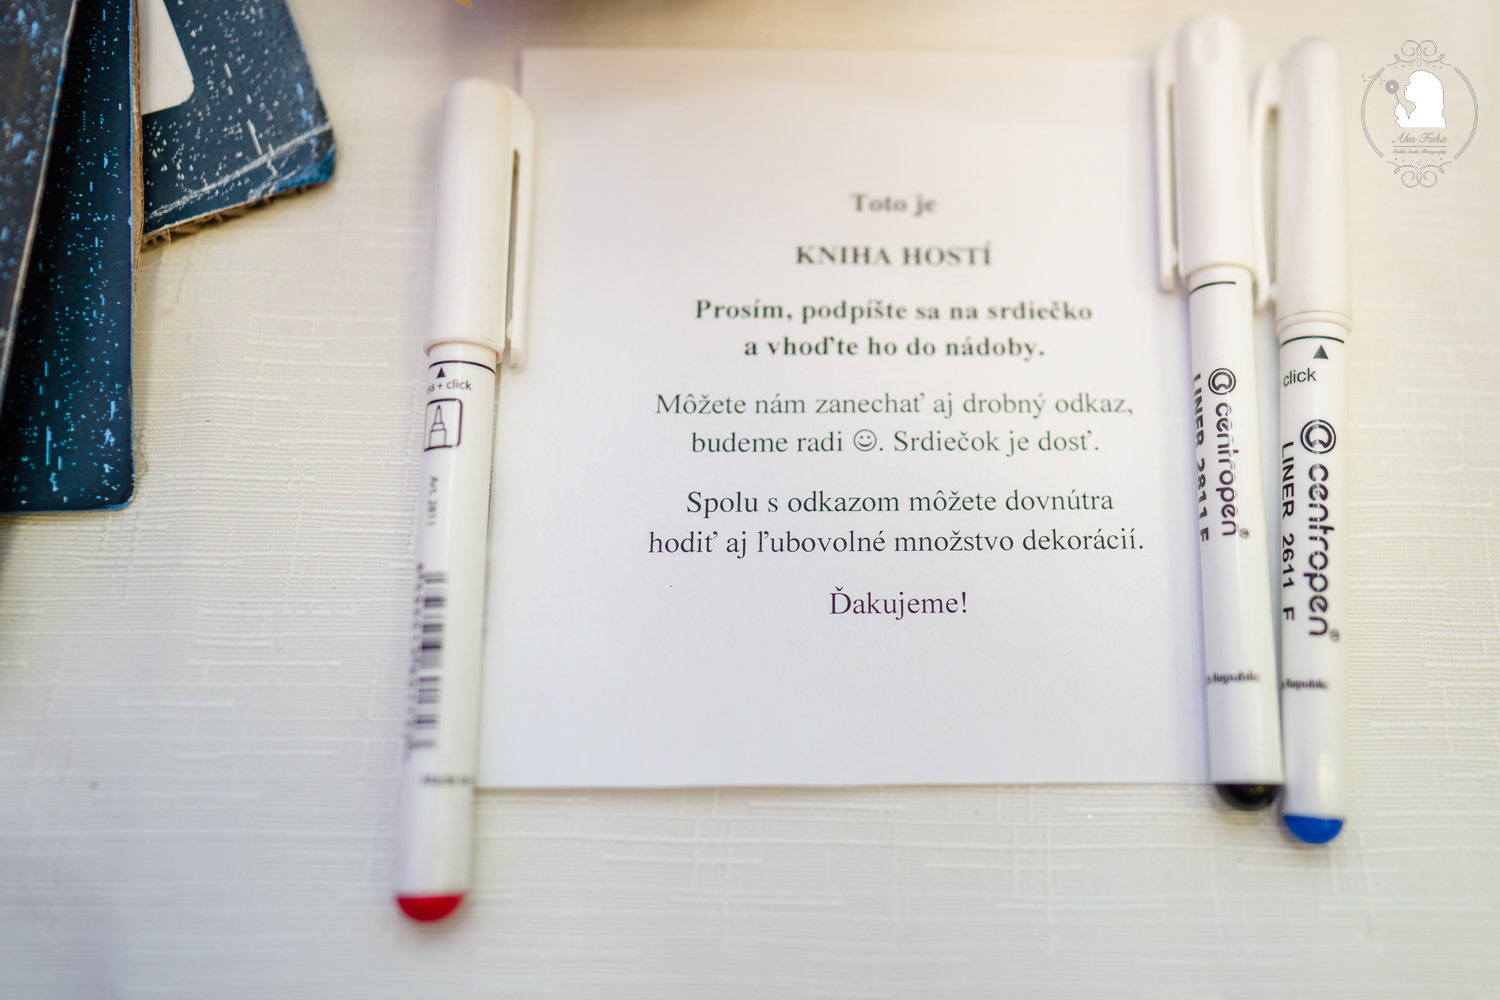 Toto je
KNIHA HOSTÍ
Prosím, podpíšte sa na srdiečko
a vhoďte ho do nádoby.
Môžete nám zanechať aj drobný odkaz,
budeme radi ☺. Srdiečok je dosť.
Spolu s odkazom môžete dovnútra
hodiť aj ľubovolné množstvo dekorácií.
Ďakujeme!
+ click
centropen®
LINER 2811 F
click
centropen®
LINER 2611 F